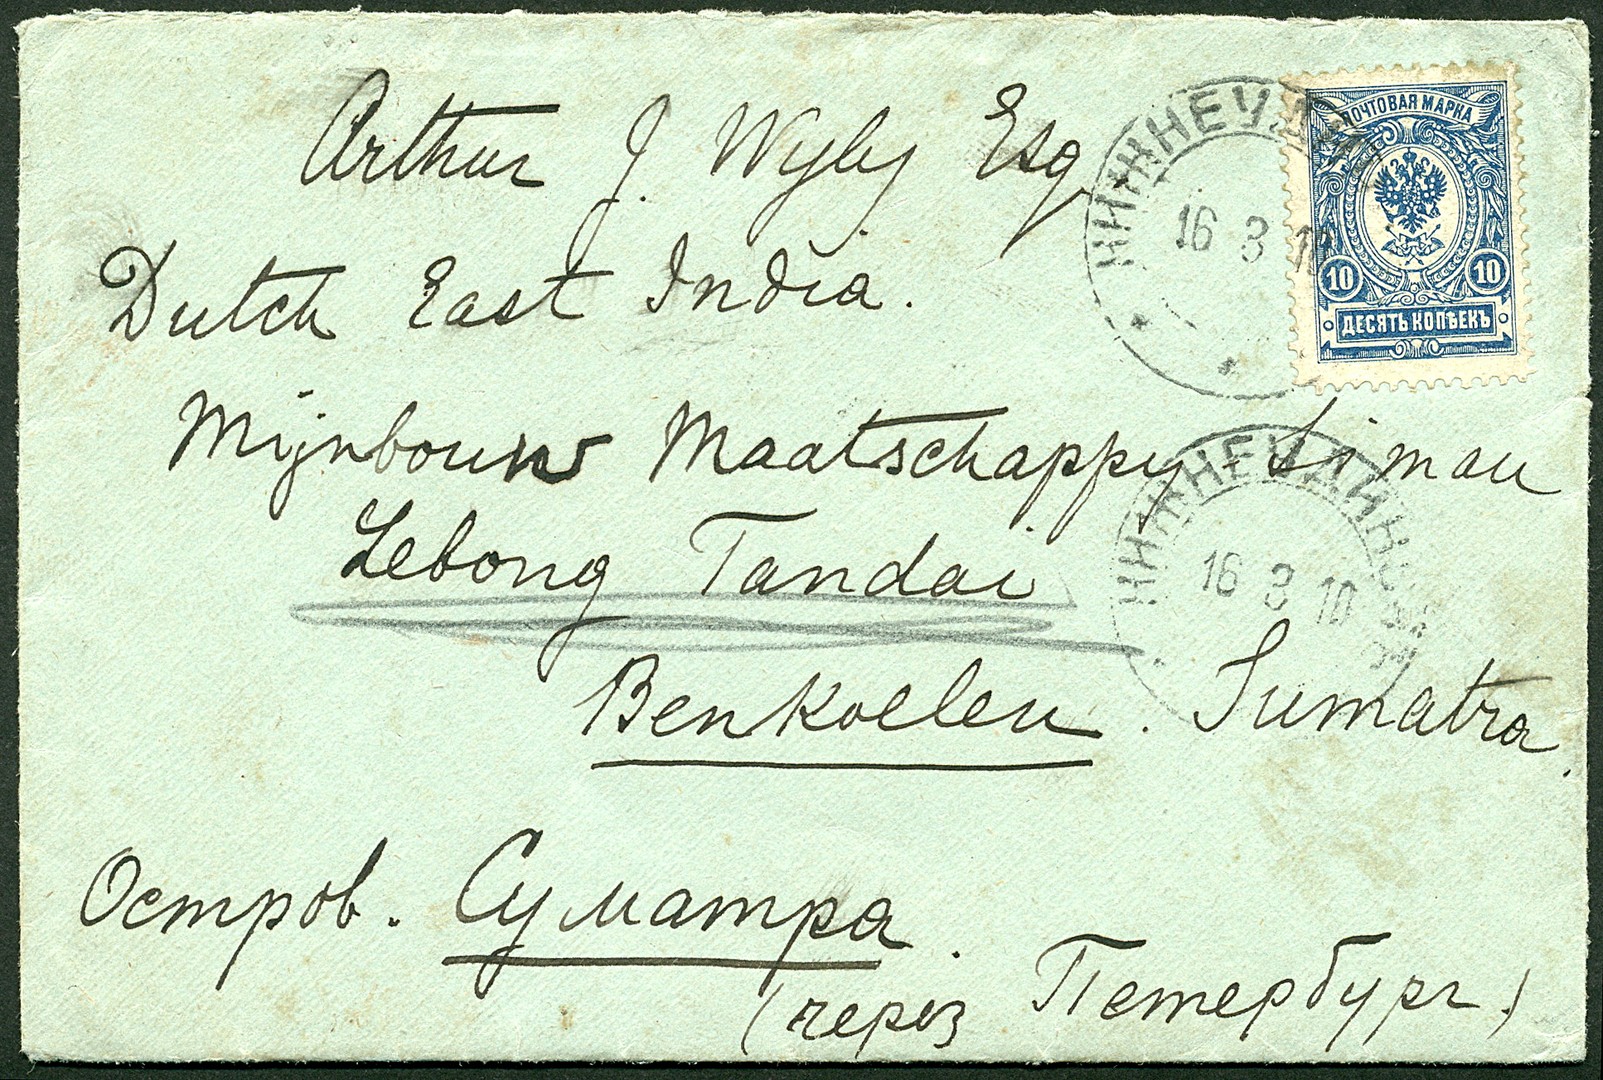 Arthur J. Wyly Esq
Dutch East India.
Mijnbouw Maatschappy Simau
Lebong Tandai
Benkoelen. Sumatra.
Остров. Суматра.
(через Петербург.)
ПОЧТОВАЯ МАРКА
10 10
ДЕСЯТЬ КОПѢЕКЪ
НИЖНЕУДИН
16 3 10
НИЖНЕУДИНС
16 3 10